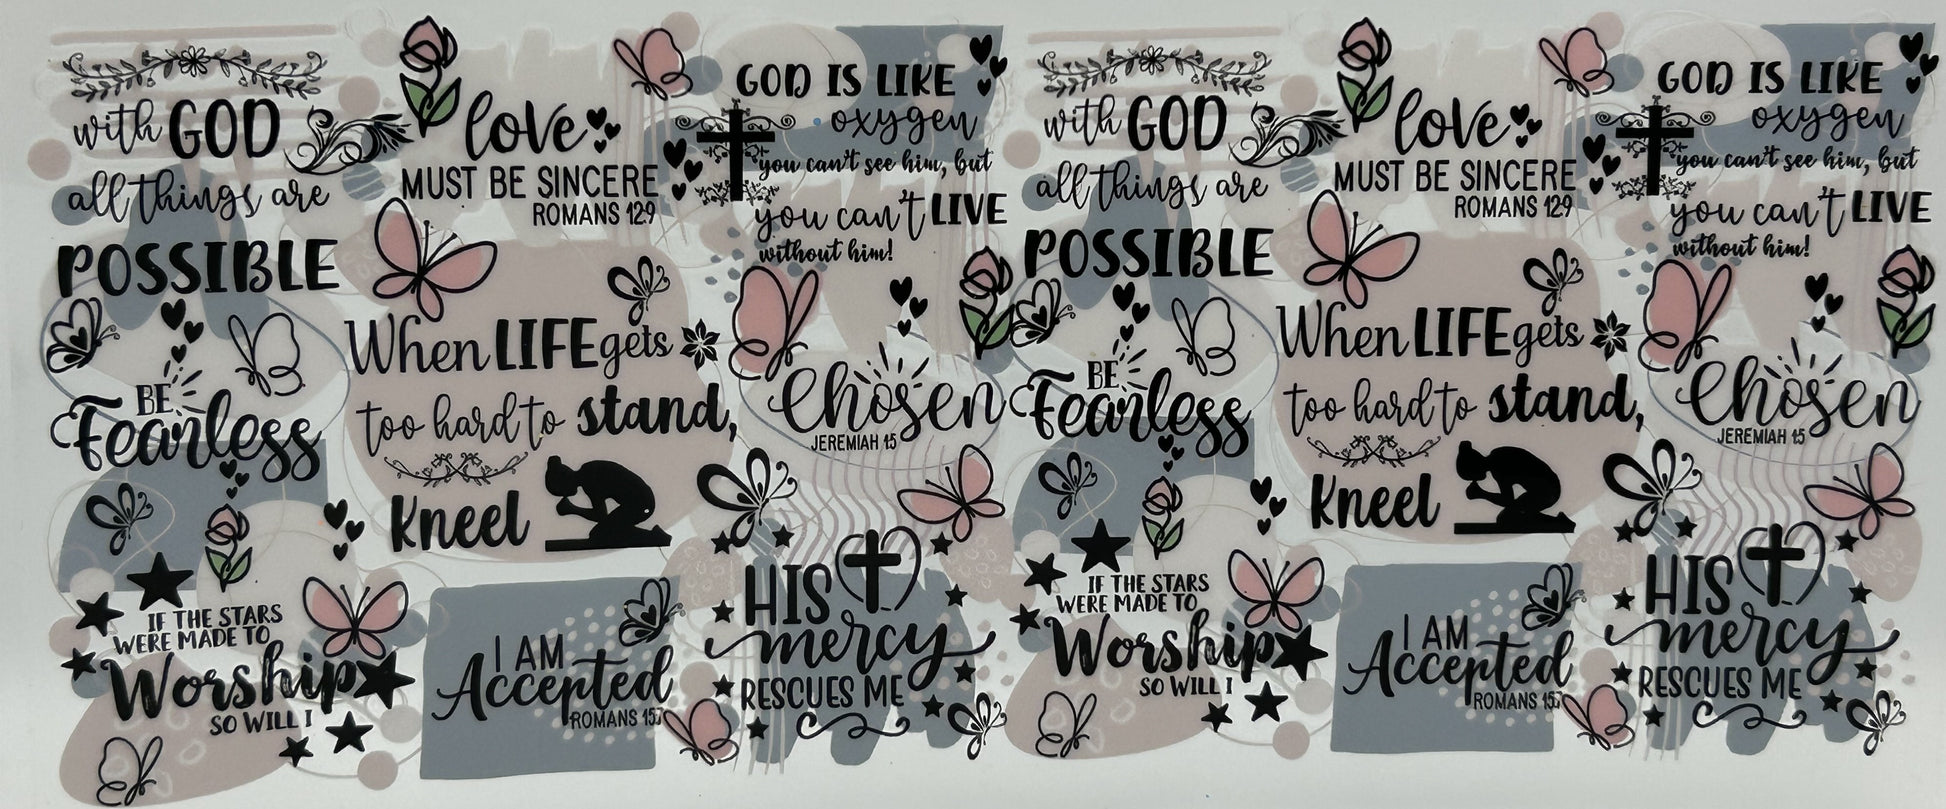 with GOD
all things are
POSSIBLE
love
MUST BE SINCERE
ROMANS 12:9
GOD IS LIKE
oxygen
you can't see him, but
you can't LIVE
without him!
BE
Fearless
When LIFE gets
too hard to stand,
Kneel
Chosen
JEREMIAH 1:5
IF THE STARS
WERE MADE TO
Worship
SO WILL I
I AM
Accepted
ROMANS 15:7
HIS
mercy
RESCUES ME
with GOD
all things are
POSSIBLE
love
MUST BE SINCERE
ROMANS 12:9
GOD IS LIKE
oxygen
you can't see him, but
you can't LIVE
without him!
BE
Fearless
When LIFE gets
too hard to stand,
Kneel
Chosen
JEREMIAH 1:5
IF THE STARS
WERE MADE TO
Worship
SO WILL I
I AM
Accepted
ROMANS 15:7
HIS
mercy
RESCUES ME